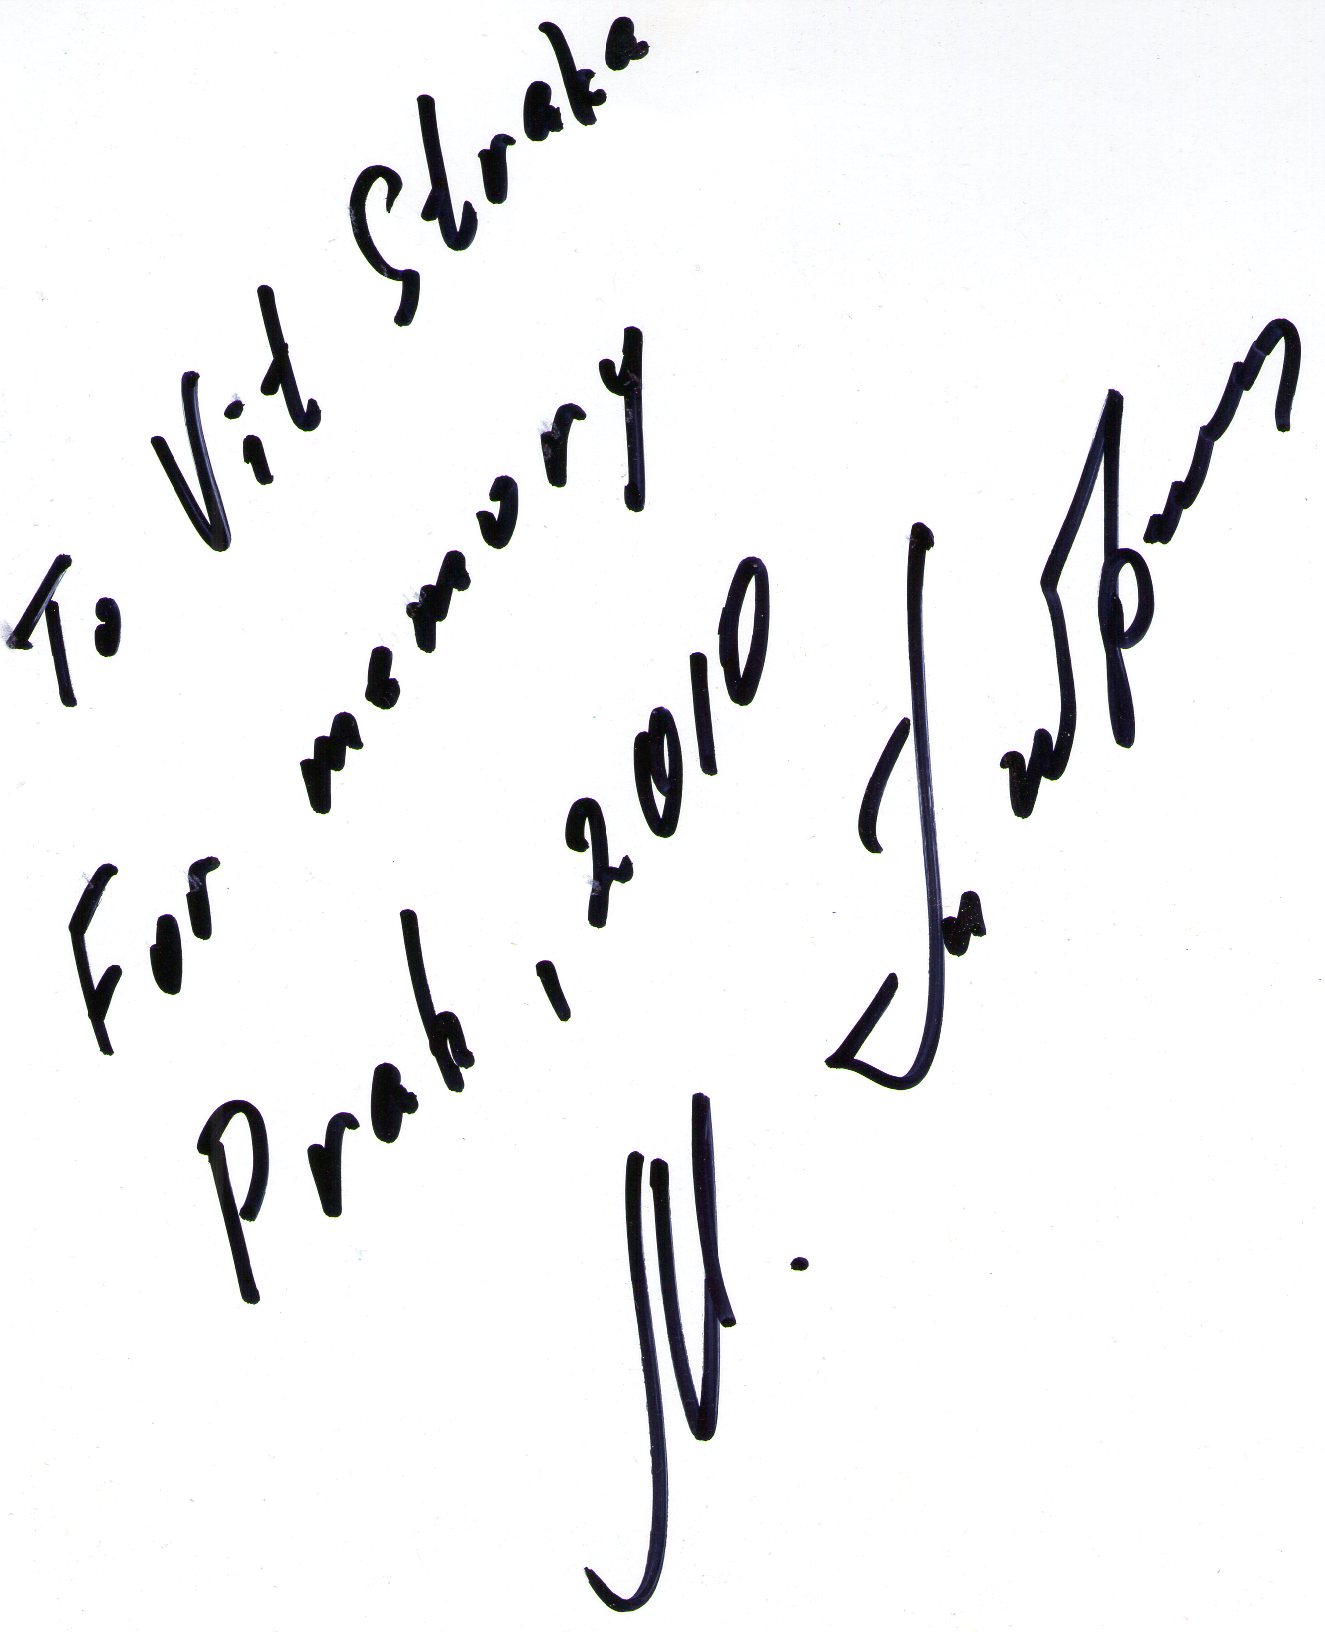 To Vit Straka
For memory
Prah, 2010